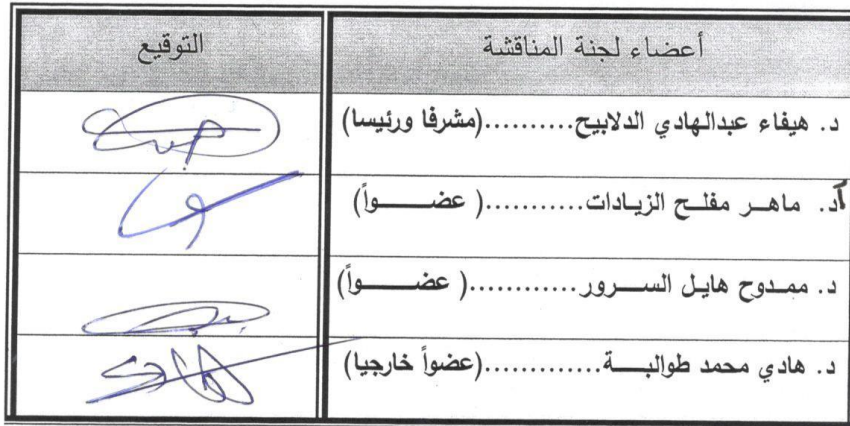 أعضاء لجنة المناقشة
التوقيع
د. هيفاء عبدالهادي الدلابيح..........(مشرفا ورئيسا)
أد. ماهر مفلح الزيادات...........( عضواً)
د. ممدوح هايل السرور............( عضواً)
د. هادي محمد طوالبة.............(عضواً خارجيا)